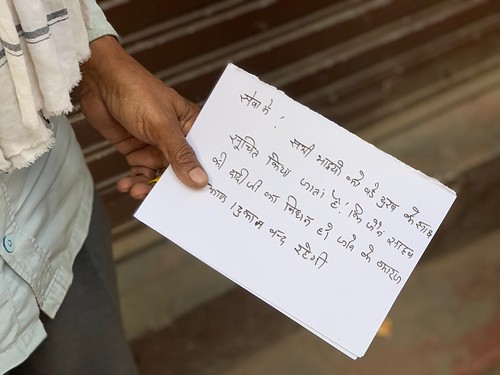 सेवा में :
सभी भाइयो को बड़े दुख के साथ
सूचित किया जाता है। कि जैन साहब
की दादी जी का निधन हो जाने के कारण
आज दुकान बन्द रहेगी